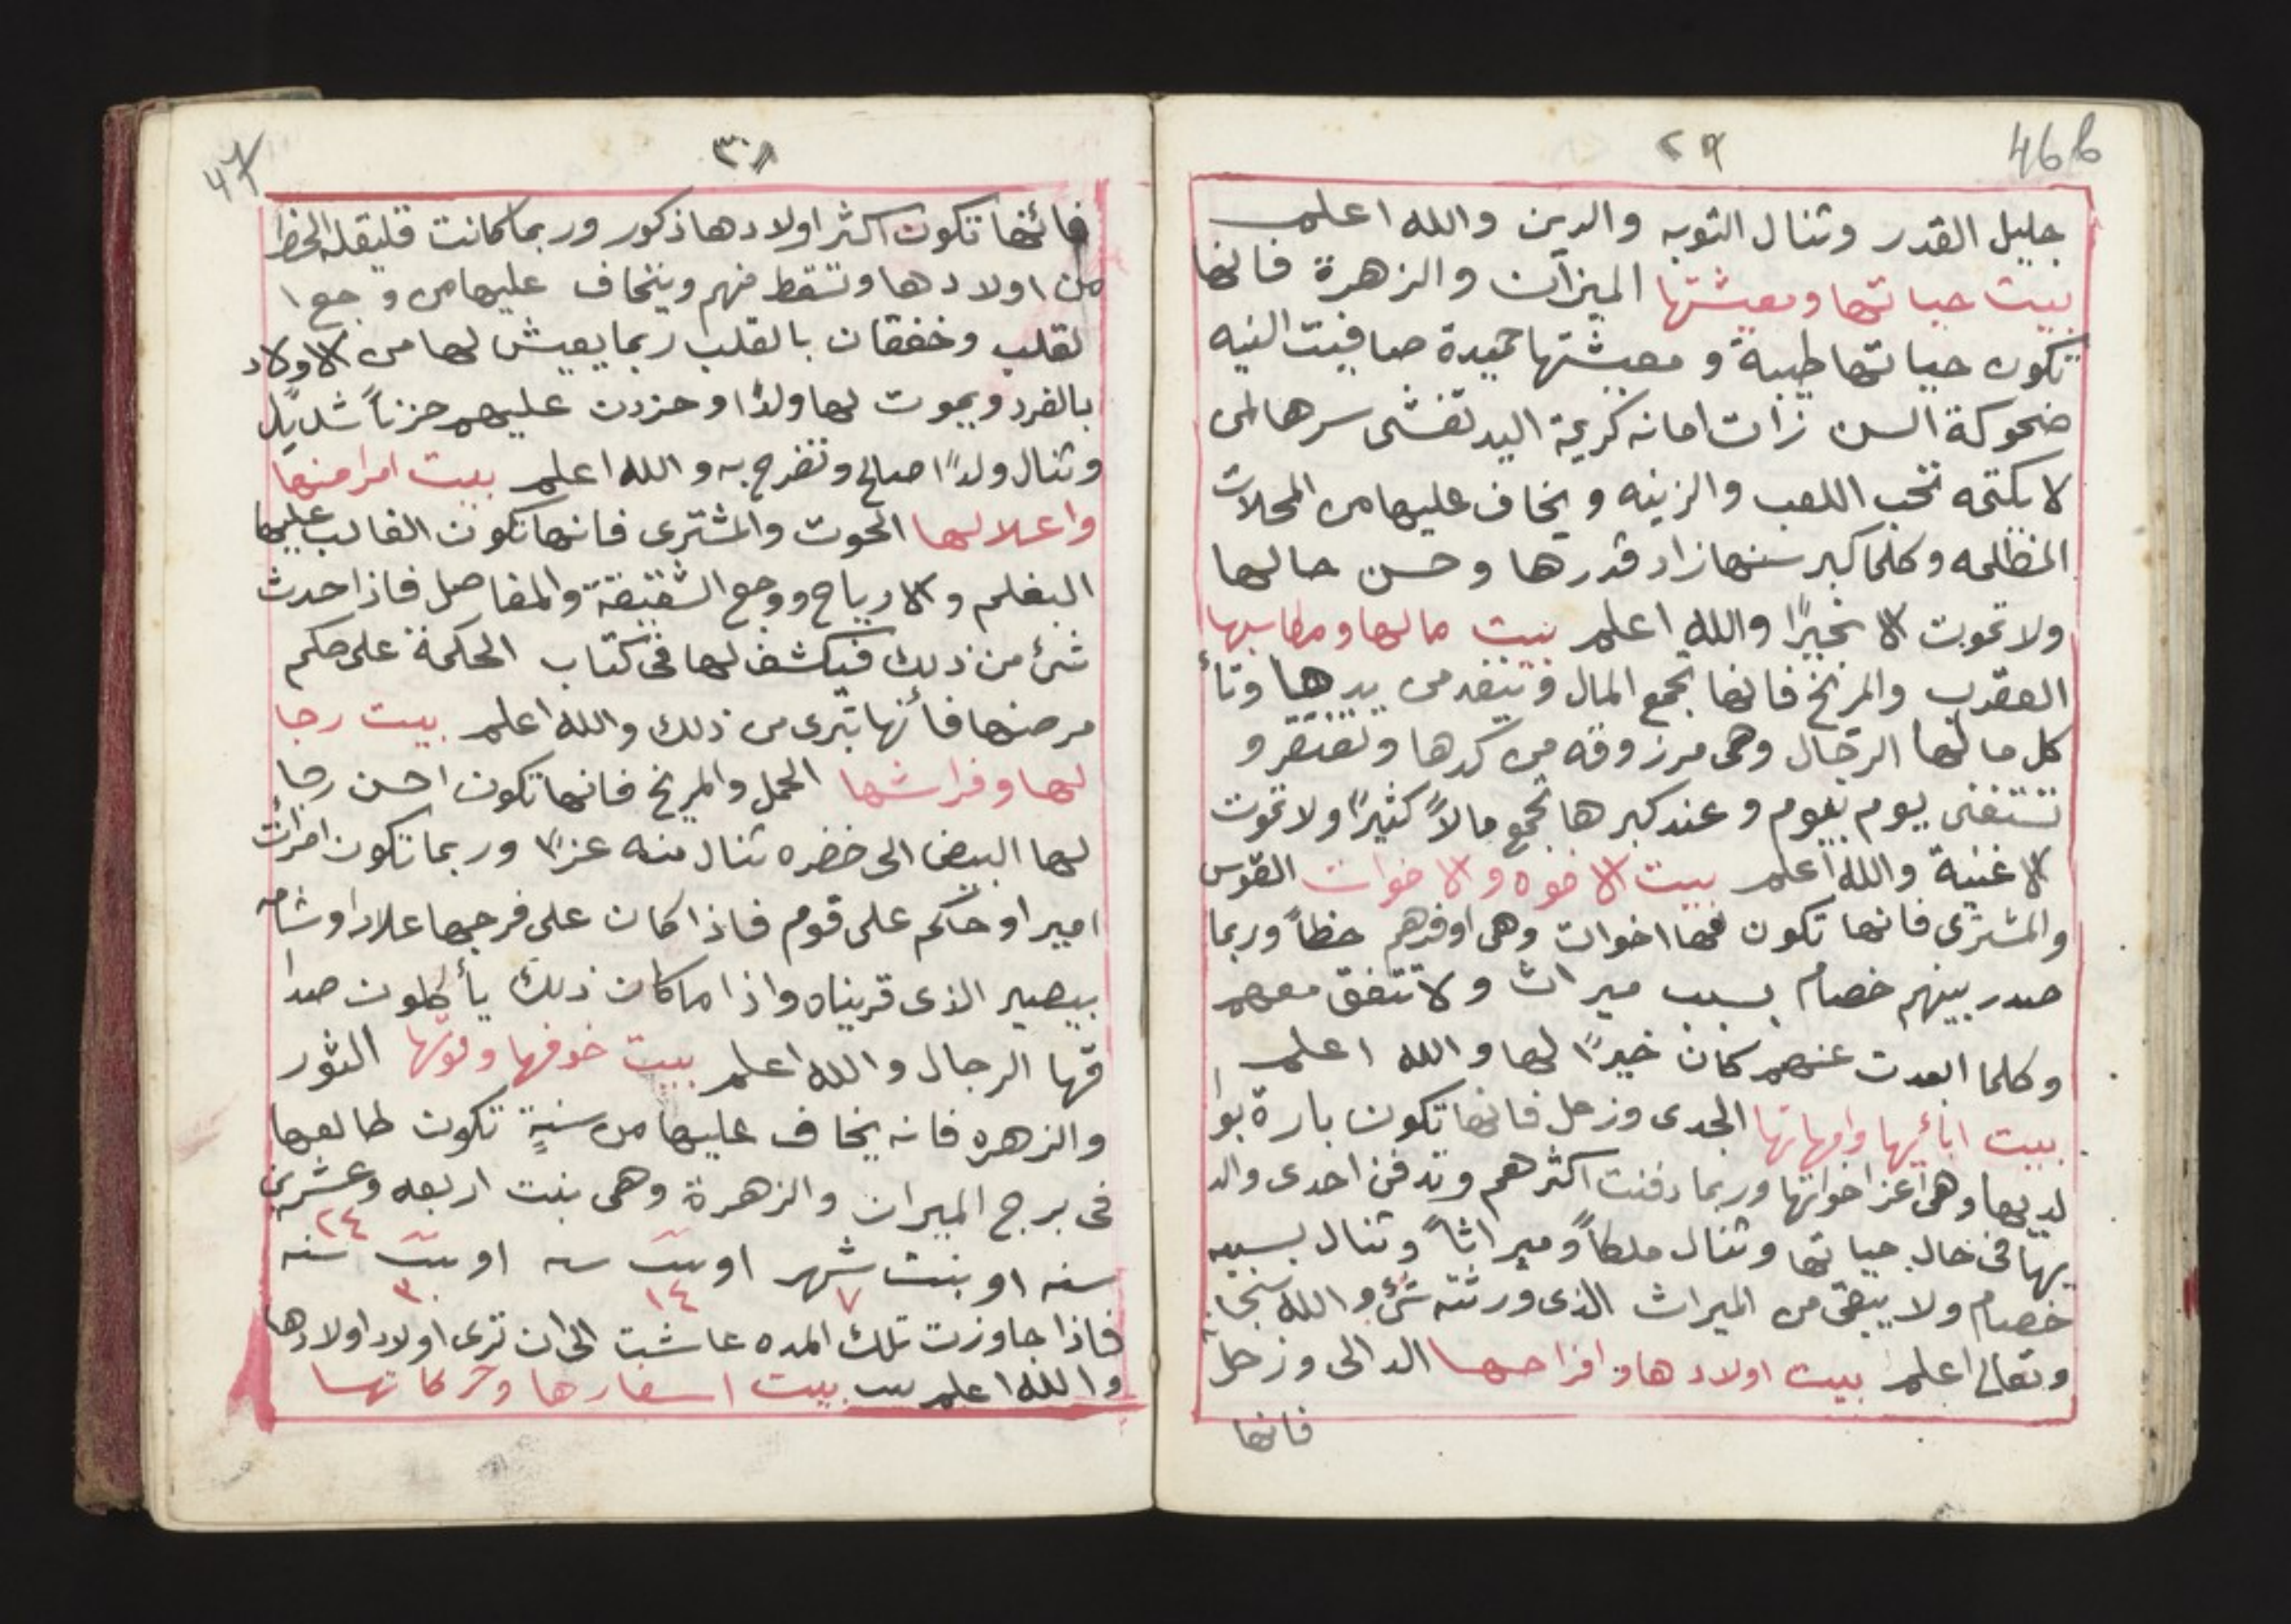 46b
٢٩
جليل القدر وتنال التوبه والدين والله اعلم
بيت حياتها ومعيشتها الميزان والزهرة فانها
تكون حياتها طيبة ومعيشتها حميدة صافيت النيه
ضحوكة السن زات امانه كريمة اليد تفشى سرها لمن
لا يكتمه تحب اللعب والزينه ويخاف عليها من المحلات
المظلمه وكلما كبر سنها زاد قدرها وحسن حالها
ولا تموت الا بخيرًا والله اعلم بيت مالها ومكاسبها
العقرب والمريخ فانها تجمع المال وينفد من يدها وتأ
كل مالها الرجال وهى مرزوقه من كدها وتفتقر و
تستغنى يوم بيوم وعند كبرها تجمع مالاً كثيرًا ولا تموت
الا غنية والله اعلم بيت الاخوه والاخوات القوس
والمشترى فانها تكون لها اخوات وهى اوفرهم حظاً وربما
صدر بينهم خصام بسبب ميراث ولا تتفق معهم
وكلما ابعدت عنهم كان خيرًا لها والله اعلم
بيت ابائها وامهاتها الجدى وزحل فانها تكون بارة بوا
لديها وهى اعز اخواتها وربما دفنت اكثرهم وتدفن احدى والد
يها فى حال حياتها وتنال ملكاً وميراثاً وتنال بسببه
خصام ولا يبقى من الميراث الذى ورثته شئ والله سبحا
وتعالى اعلم بيت اولادها وافراحها الدالى وزحل
فانها
47
٣٠
فانها تكون اكثر اولادها ذكور وربما كانت قليلة الحظ
من اولادها وتسقط منهم ويتخاف عليها من وجع ا
لقلب وخفقان بالقلب ربما يعيش لها من الاولاد
بالفرد ويموت لها ولدًا وحزنت عليهم حزناً شديد
وتنال ولدًا صالح وتفرح به والله اعلم بيت امراضها
واعلالها الحوت والمشترى فانها تكون الغالب عليها
البغلم والارياح ووجع الشقيقة والمفاصل فاذا حدث
شئ من ذلك فيكشف لها فى كتاب الحكمة على حكم
مرضها فأنها تبرى من ذلك والله اعلم بيت رجا
لها وفراشها الحمل والمريخ فانها تكون احسن رجا
لها البيض الى خضره تنال منه عزًا وربما تكون امرات
امير او حاكم على قوم فاذا كان على فرجها علاد او شامه
بيصير الذى قريناه واذا ما كان ذلك يأكلون صدا
قها الرجال والله اعلم بيت خوفها وموتها الثور
والزهره فانه يخاف عليها من سنةٍ تكون طالعها
فى برج الميزان والزهرة وهى بنت اربعه وعشرين
٢٤
سنه او بنت شهر او بنت سنه او بنت سنه
٧ ١٤ ٣٠
فاذا جاوزت تلك المده عاشت الى ان ترى اولاد اولادها
والله اعلم بيت اسفارها وحركاتها